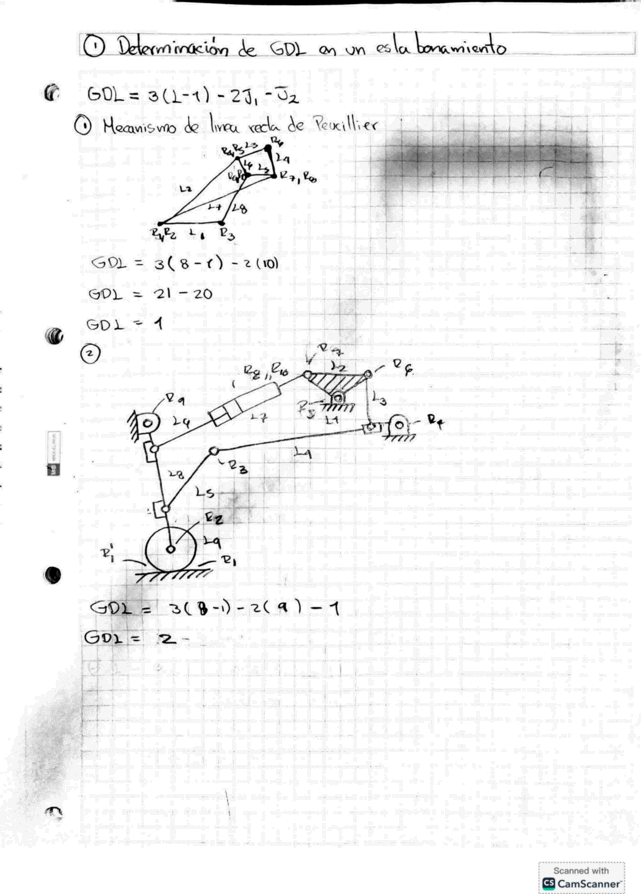 ① Determinación de GDL en un eslabonamiento
GDL = 3(L-1) - 2J₁ - J₂
① Mecanismo de linea recta de Peucillier
R₄R₅ L3 R₆
L2 L4
R₇,R₈
L7 L8
R₁R₂ L₁ R₃
GDL = 3(8-1) - 2(10)
GDL = 21 - 20
GDL = 1
②
R₈,R₁₀ R₇ L2 R₆
R₉ L6 L7 R₅ L1 L3 R₄
L8 R₃ L4
L5
R₂
R₁' L9 R₁
GDL = 3(8-1) - 2(9) - 1
GDL = 2 -
Scanned with
CS CamScanner